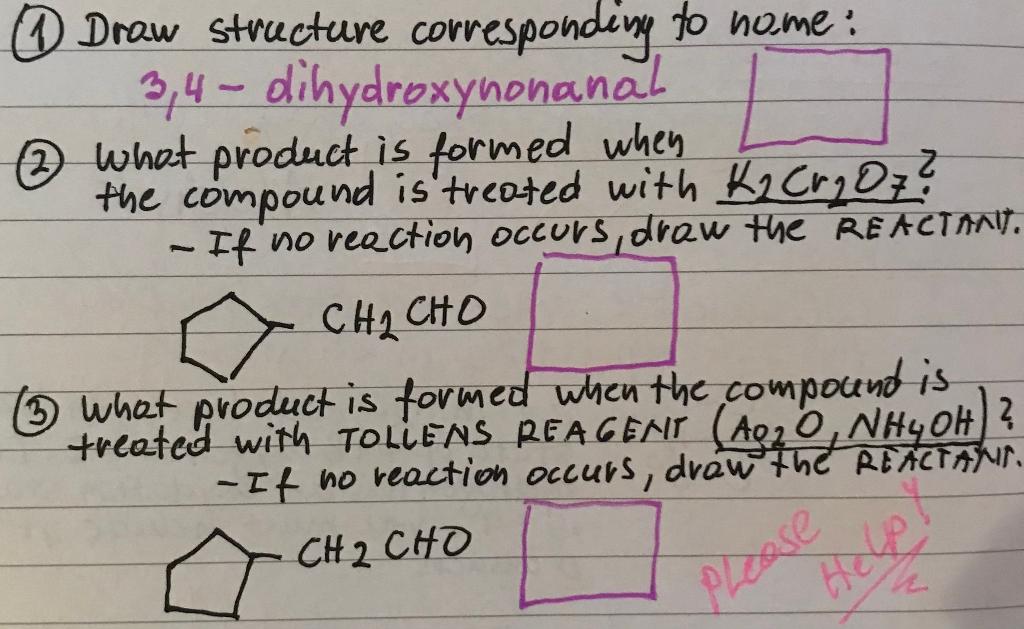 ① Draw structure corresponding to name:
3,4 - dihydroxynonanal
② What product is formed when
the compound is treated with K2Cr2O7?
- If no reaction occurs, draw the REACTANT.
CH2CHO
③ What product is formed when the compound is
treated with TOLLENS REAGENT (Ag2O, NH4OH)?
- If no reaction occurs, draw the REACTANT.
CH2CHO
PLease
HeLP!